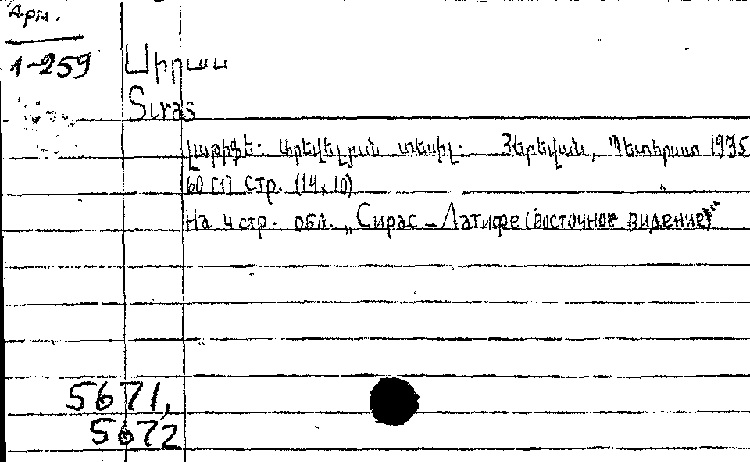 Арм.
1-259
Սիրաս
Siras
Լաթիֆե. Արեվելյան տեսիլ. Յերեվան, Պետհրատ 1935
60 [1] стр. (14×10)
На 4 стр. обл. „Сирас – Латифе (восточное видение)"
5671,
5672